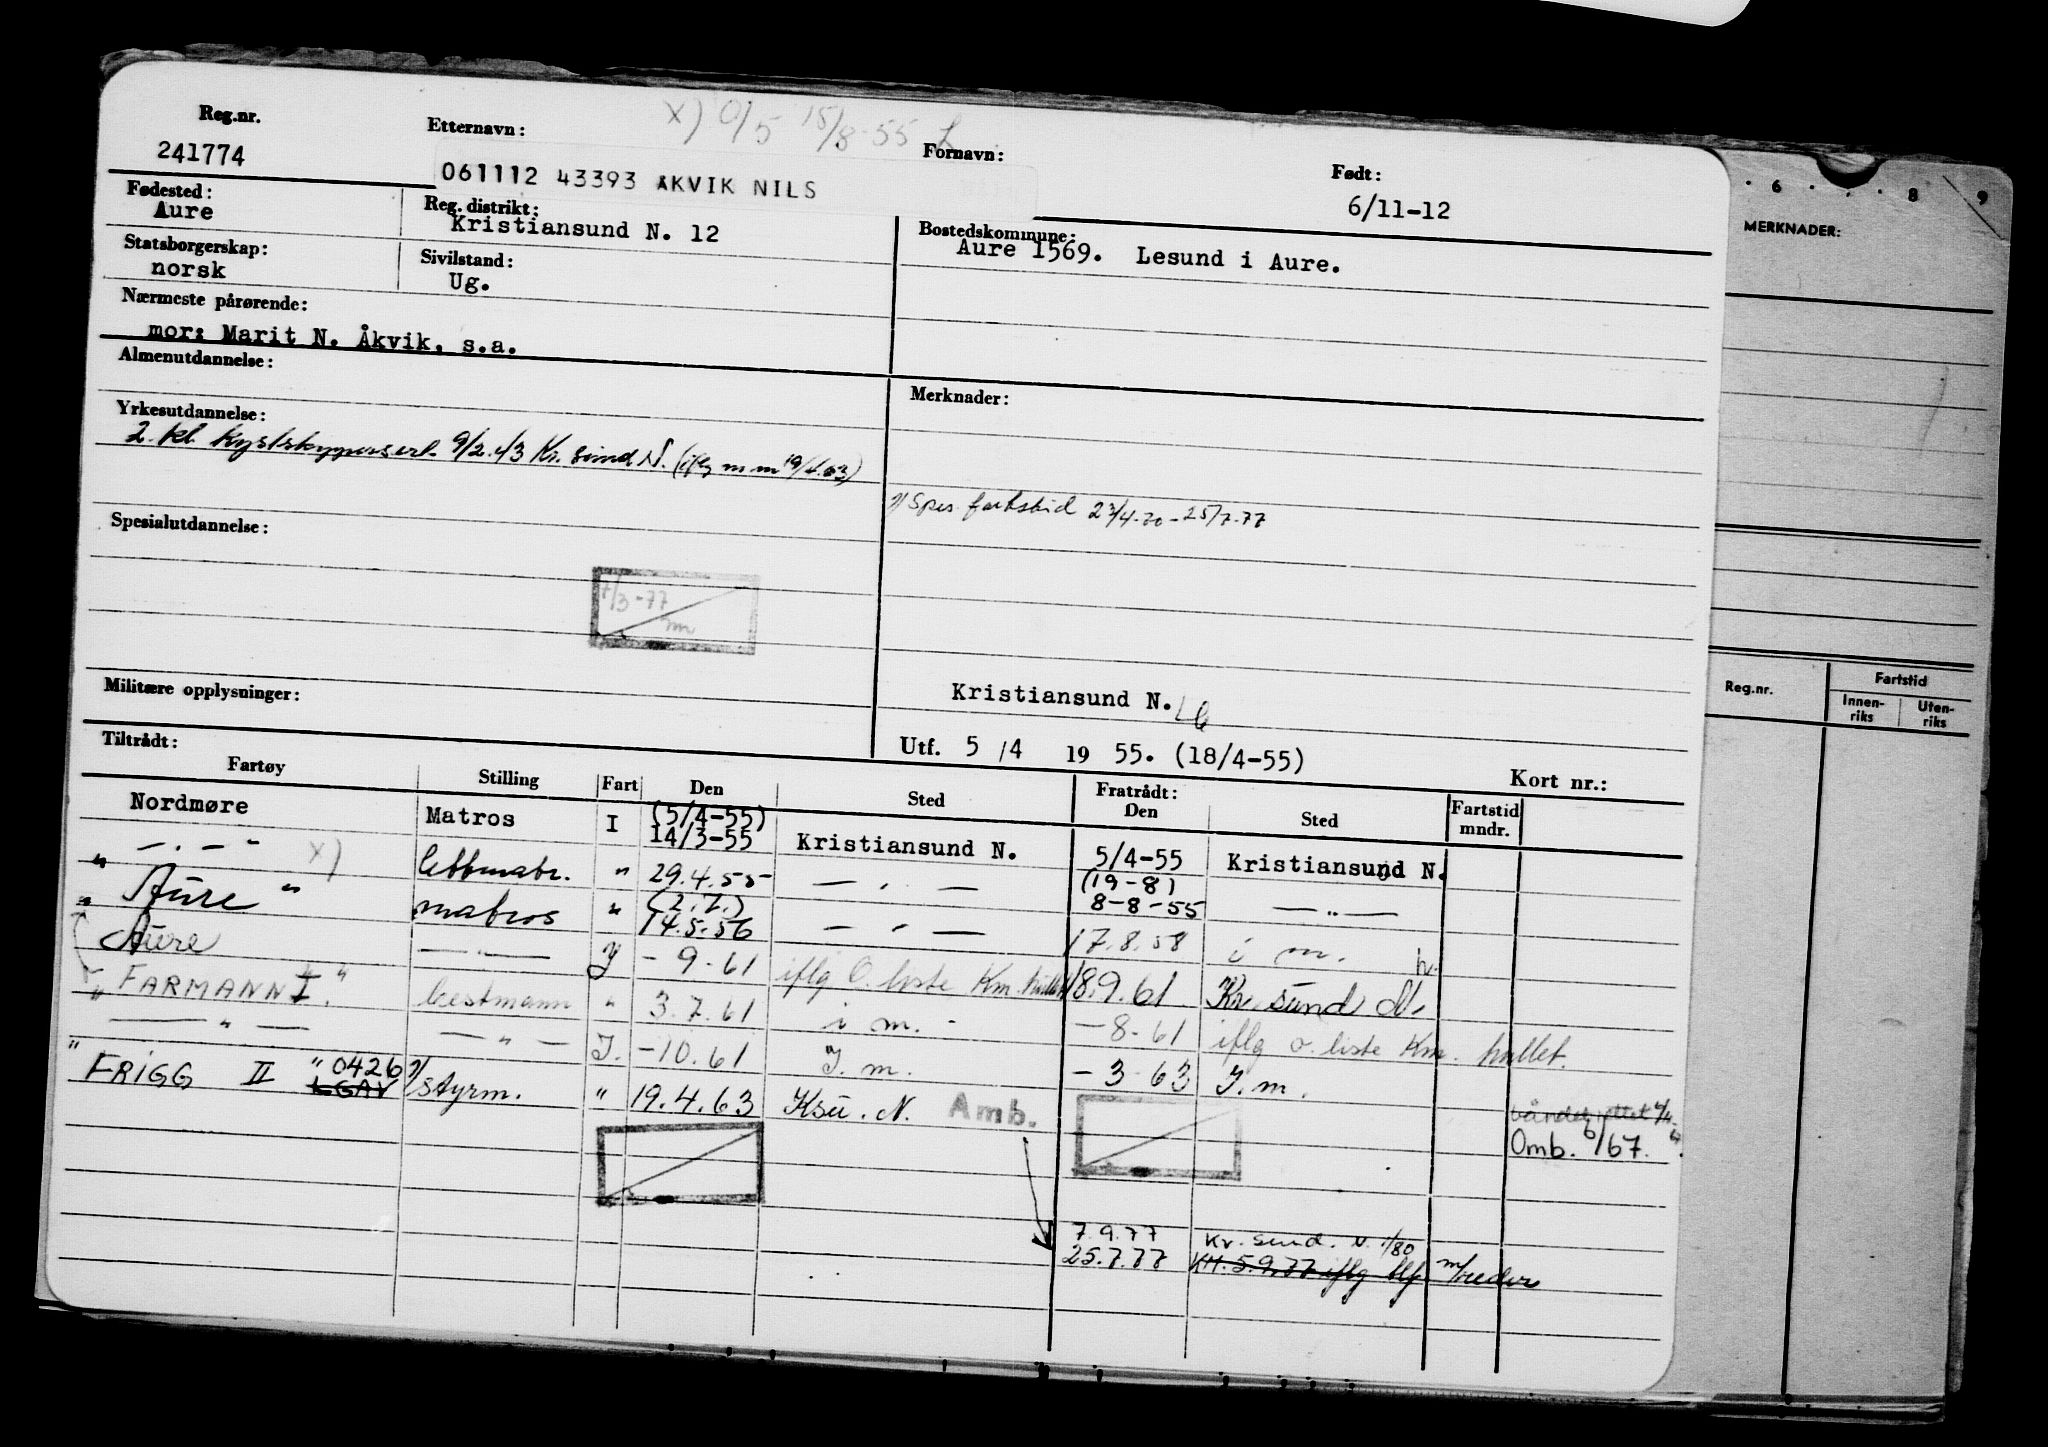 x) 0/5 15/8-55
Reg.nr. Etternavn: Fornavn: Født:
241774 061112 43393 AKVIK NILS 6/11-12
Fødested: Reg. distrikt: Bostedskommune:
Aure Kristiansund N. 12 Aure 1569. Lesund i Aure.
Statsborgerskap: Sivilstand:
norsk Ug.
Nærmeste pårørende:
mor: Marit N. Åkvik, s.a.
Almenutdannelse: Merknader:
Yrkesutdannelse:
2. kl. kystskyppersert. 9/2.43 Kr. sund N. (iflg m m 19/4.63)
Spes. fartstid 23/4.70-25/7.77
Spesialutdannelse:
7/3-77
m
Militære opplysninger: Kristiansund N.
Utf. 5 /4 19 55. (18/4-55)
Kort nr.:
Tiltrådt: Fratrådt:
Fartøy Stilling Fart Den Sted Den Sted Fartstid mndr.
Nordmøre Matros I (5/4-55) 14/3-55 Kristiansund N. 5/4-55 Kristiansund N.
— " — x) lettmatr. " 29.4.55 — " — (19-8) 8-8-55 — " —
" Aure " matros " (2.7.) 14.5.56 — " — 17.8.58 i m.
" Aure — " — I - 9-61 iflg O. liste Km. hullet 18.9.61 Kr. sund N.
" FARMANN I " bestmann " 3.7.61 i m. - 8-61 iflg o. liste Km. hullet.
— " — — " — I. -10.61 I. m. - 3 63 I. m.
" FRIGG II " 0426 LGAV styrm. " 19.4.63 Ksu. N. Amb.
Omb. 6/67.
7.9.77 Kr. sund. N. 1/80
25.7.77 KH. 5.9.77 iflg blf m/reders
6 8 9
MERKNADER:
Reg.nr. Fartstid
Innen-riks Uten-riks